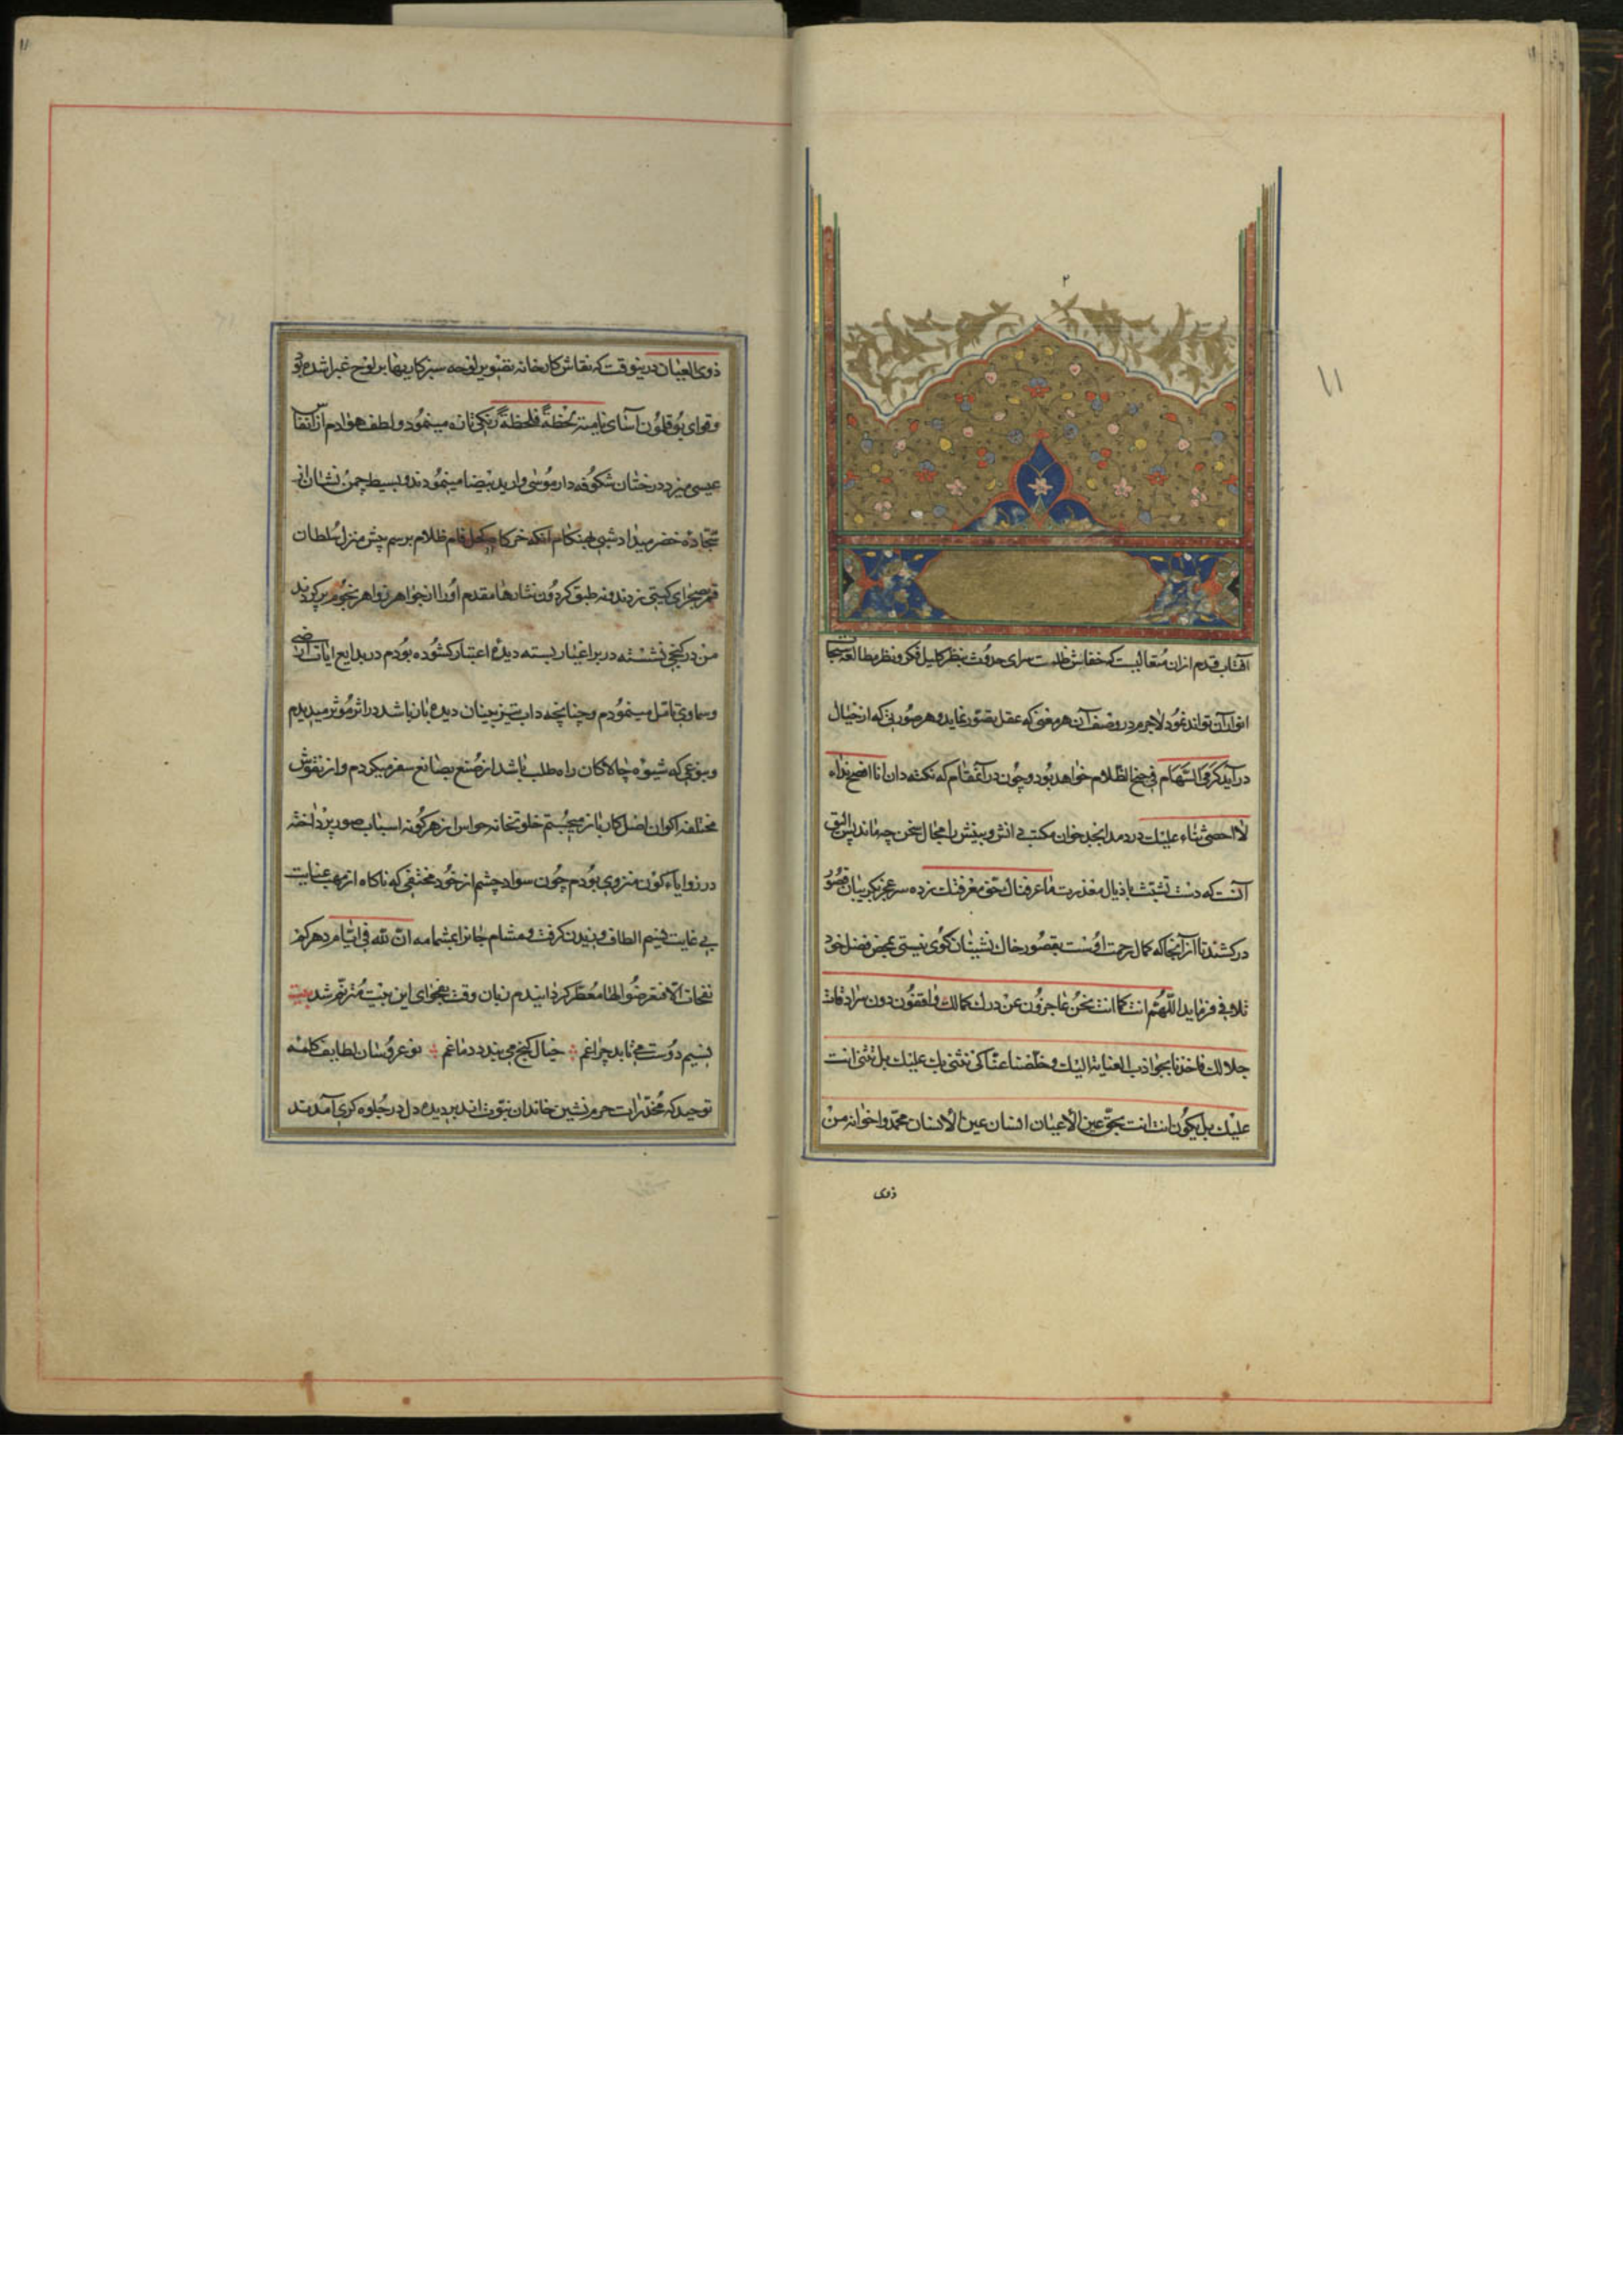 ۲
۱۱
آفتاب قدم ازان متعالیست که خفاش ظلمت سرای حدوث بنظر کلیل فکر و نظر مطالعه سبحات
انوار آن تواند نمود لاجرم در وصف آن هر معنی که عقل تصور نماید و هر صورتی که از خیال
در آید کرمی السهام فی جنح الظلام خواهد بود و چون در آن مقام که نکته دان انا افصح بنداء
لا احصی ثناء علیک در دمد ابجد خوان مکتب دانش و بینش را مجال سخن چه ماند پس الیق
آنست که دست تشبث باذیال معذرت ما عرفناک حق معرفتک زده سر عجز بگریبان قصور
در کشند تا از آنجا که کمال رحمت اوست بقصور خاک نشینان کوی نیستی بمحض فضل خود
تلافی فرماید اللهم انت کما انت نحن عاجزون عن درک کمالک واقفون دون سرادقات
جلالک فاخذنا بجواذب العنایة الیک و خلصنا عنا کی نثنی بک علیک بل تثنی انت
علیک بل یکون انت انت بحق عین الاعیان انسان عین الانسان محمد واخوانه من
ذوی
ذوی العیان درینوقت که نقاش کارخانه تصویر لوحه سبز کار بهار بر لوح غبرا شده بود
وقوای بوقلمون آسای نامیه لحظة فلحظة رنگی تازه مینمود و لطف هوا دم از انفاس
عیسی میزد درختان شکوفه دار موسی وار ید بیضا مینمودند و بسیط چمن نشان از
سجاده خضر میداد شبی هنگام آنکه خرگاه کحل فام ظلام برسم پیش منزل سلطان
قمر بصحرای گیتی زدند و نه طبق گردون نثارها مقدم او را از جواهر زواهر نجوم پر کردند
من در کنجی نشسته در بر اغیار بسته دیده اعتبار گشوده بودم در بدایع ایات ارضی
وسماوی تامل مینمودم و چنانچه داب تیز بینان دیده باز باشد در اثر موثر میدیدم
وبنوعی که شیوه چالاکان راه طلب باشد از صنع بصانع سفر میکردم و از نقوش
مختلفه اکوان اصل کار باز میجستم خلوتخانه حواس از هر گونه اسباب صور پرداخته
در زوایاء کون منزوی بودم چون سواد چشم از خود مختفی که ناکاه از مهب عنایت
بی غایت نسیم الطاف وزیدن گرفت و مشام جانرا بشمامه ان لله فی ایام دهرکم
نفحات الا فتعرضوا لها معطر گردانیدم زبان وقت بفحوای این بیت مترنم شد بیت
نسیم دوست می یابد چراغم ؞ خیال گنج می بیند دماغم ؞ نو عروسان لطایف کلمه
توحید که مخدرات حرم نشین خاندان نبوت اند بر دیده دل در جلوه گری آمدند